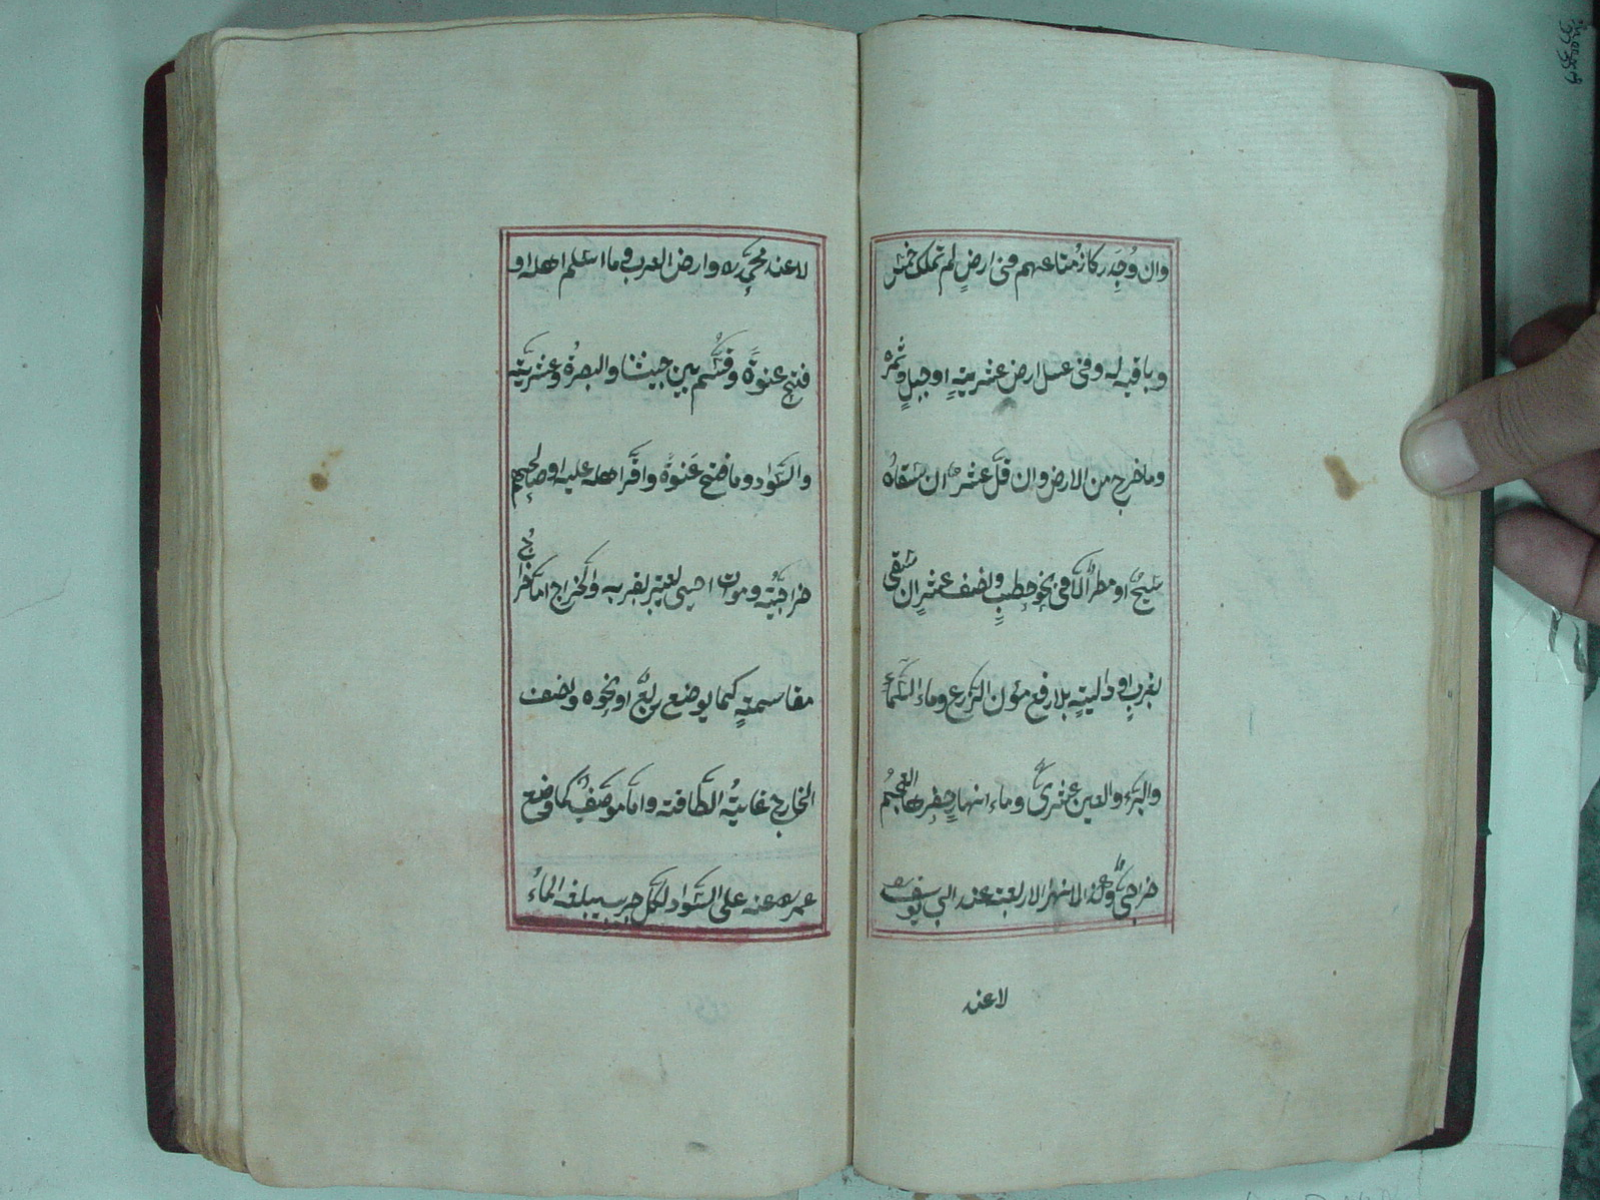 وان وُجِدَ ركازُ متاعهم فى ارضٍ لم تملك خمس
وباقيه له وفى عسل ارض عشريةٍ او جبلٍ وثمره
وما خرج من الارض وان قلَّ عشرٌ ان سقاه
سيحٌ او مطرٌ الّا فى نحو حطبٍ ونصف عشرٍ ان سقى
بغربٍ او داليةٍ بلا رفع مؤن الزرع وماء السَّماء
والبئر والعين عشرىٌّ وماء انهارٍ حفرها العجم
خراجىٌّ وكذا الانهار الاربعة عند ابى يوسف
لا عند
لا عند محمد ره وارض العرب وما اسلم اهله او
فتح عنوةً وقسّم بين جيشنا والبصرة عشريّة
والسَّواد وما فتح عَنوةً واقرّ اهله عليه او صالحهم
خراجيّةٌ وموات احيى يعتبر بقربه والخراج امّا خراج
مقاسمةٍ كما يوضع ربعٌ او نحوه ونصف
الخارج غايةُ الطاقة وامّا موظّفٌ كما وضع
عمر رضـ عنه على السَّواد لكلّ جريبٍ يبلغه الماءُ